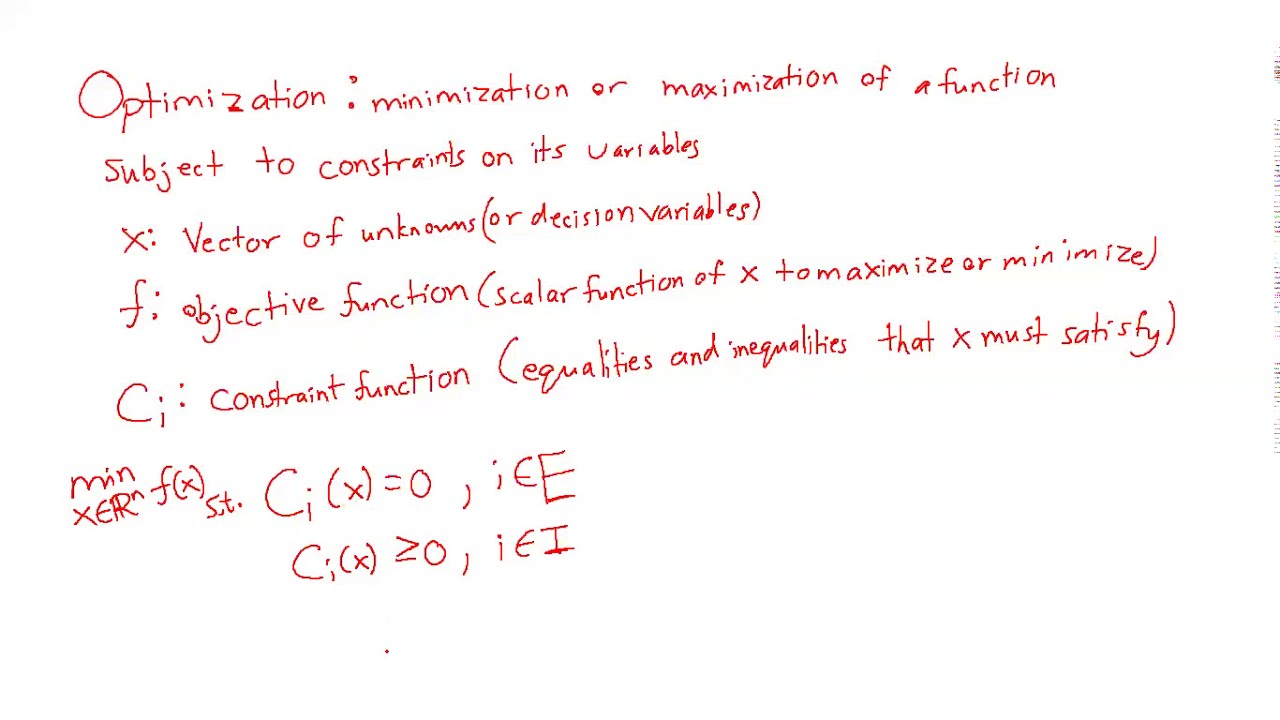 Optimization : minimization or maximization of a function
subject to constraints on its variables
x: Vector of unknowns (or decision variables)
f: objective function (scalar function of x to maximize or minimize)
Ci: constraint function (equalities and inequalities that x must satisfy)
min x∈ℝⁿ f(x) s.t. Ci(x)=0, i∈E
Ci(x) ≥0, i∈I